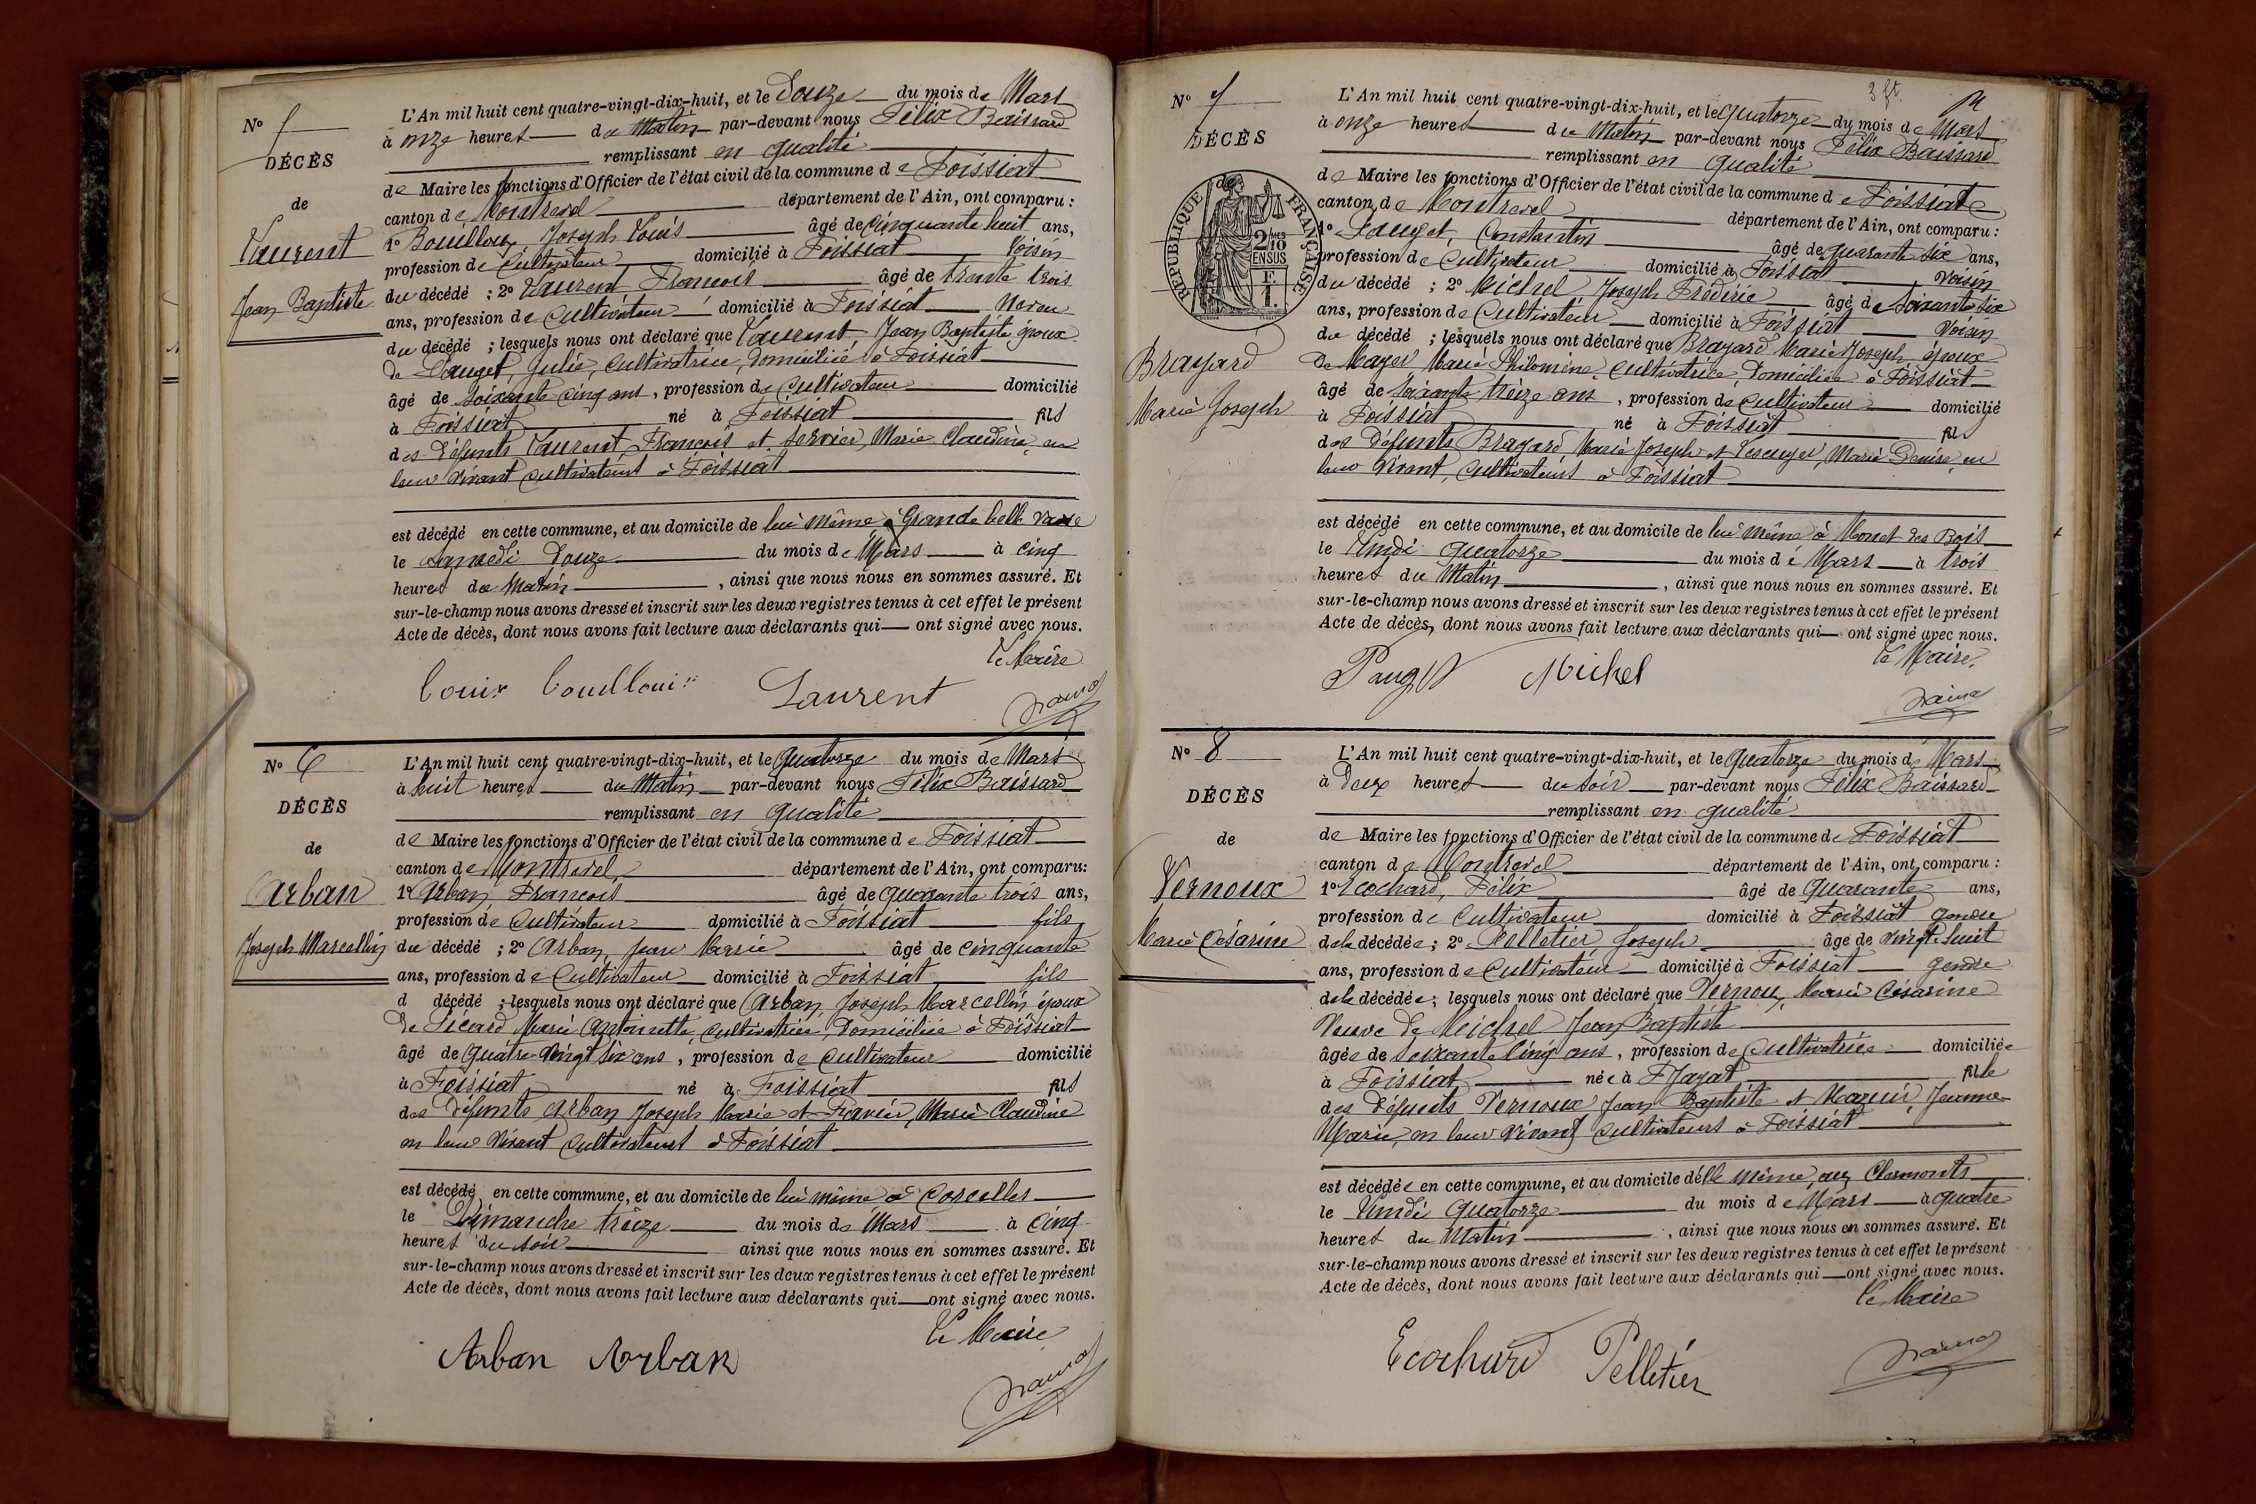 N° 5
DÉCÈS
de
Laurent
Jean Baptiste
L'An mil huit cent quatre-vingt-dix-huit, et le Douze du mois de Mars
à onze heures du Matin par-devant nous Félix Baissard
remplissant en qualité
de Maire les fonctions d'Officier de l'état civil de la commune de Foissiat
canton de Montrevel département de l'Ain, ont comparu :
1° Bouilloux, Joseph Louis âgé de Cinquante huit ans,
profession de Cultivateur domicilié à Foissiat Voisin
du décédé ; 2° Laurent François âgé de trente trois
ans, profession de Cultivateur domicilié à Foissiat Neveu
du décédé ; lesquels nous ont déclaré que Laurent, Jean Baptiste époux
de Pauget, Julie, Cultivatrice, Domiciliée à Foissiat
âgé de soixante cinq ans, profession de Cultivateur domicilié
à Foissiat né à Foissiat fils
des défunts Laurent, François et Servier, Marie Claudine, en
leur vivant cultivateurs à Foissiat
est décédé en cette commune, et au domicile de lui même à Grande belle
le samedi Douze du mois de Mars à cinq
heures du Matin , ainsi que nous nous en sommes assuré. Et
sur-le-champ nous avons dressé et inscrit sur les deux registres tenus à cet effet le présent
Acte de décès, dont nous avons fait lecture aux déclarants qui ont signé avec nous.
Le Maire
Louis Laurent
N° 6
DÉCÈS
de
Arban
Joseph Marcellin
L'An mil huit cent quatre-vingt-dix-huit, et le Quatorze du mois de Mars
à huit heures du Matin par-devant nous Félix Baissard
remplissant en qualité
de Maire les fonctions d'Officier de l'état civil de la commune de Foissiat
canton de Montrevel, département de l'Ain, ont comparu:
1° Arban, François âgé de Quarante trois ans,
profession de Cultivateur domicilié à Foissiat fils
du décédé ; 2° Arban, Jean Marie âgé de cinquante
ans, profession de Cultivateur domicilié à Foissiat fils
d décédé ; lesquels nous ont déclaré que Arban, Joseph Marcellin époux
de Sicard Marie Antoinette, cultivatrice, Domiciliée à Foissiat
âgé de Quatre vingt six ans, profession de Cultivateur domicilié
à Foissiat né à Foissiat fils
des Défunts Arban, Joseph Marie et Marie Claudine
en leur vivant Cultivateurs à Foissiat
est décédé en cette commune, et au domicile de lui même à Corcelles
le Dimanche treize du mois de Mars à Cinq
heures du soir ainsi que nous nous en sommes assuré. Et
sur-le-champ nous avons dressé et inscrit sur les deux registres tenus à cet effet le présent
Acte de décès, dont nous avons fait lecture aux déclarants qui ont signé avec nous.
Le Maire
Arban Arban
N° 7
DÉCÈS
de
RÉPUBLIQUE FRANÇAISE
2/10 EN SUS
Brayard
Marie Joseph
3 ft.
L'An mil huit cent quatre-vingt-dix-huit, et le Quatorze du mois de Mars
à onze heures du Matin par-devant nous Félix Baissard
remplissant en qualité
de Maire les fonctions d'Officier de l'état civil de la commune de Foissiat
canton de Montrevel département de l'Ain, ont comparu :
1° Pauget, Constantin âgé de quarante six ans,
profession de Cultivateur domicilié à Foissiat voisin
du décédé ; 2° Michel Joseph Frédéric âgé de Soixante six
ans, profession de Cultivateur domicilié à Foissiat Voisin
du décédé ; lesquels nous ont déclaré que Brayard Marie Joseph, époux
de Mayer Marie Philomène, cultivatrice, Domiciliée à Foissiat
âgé de soixante treize ans, profession de Cultivateur domicilié
à Foissiat né à Foissiat fils
des Défunts Brayard, Marie Joseph et Lescuyer, Marie Denise, en
leur vivant, Cultivateurs à Foissiat
est décédé en cette commune, et au domicile de lui même à des Bois
le Lundi quatorze du mois de Mars à trois
heures du Matin , ainsi que nous nous en sommes assuré. Et
sur-le-champ nous avons dressé et inscrit sur les deux registres tenus à cet effet le présent
Acte de décès, dont nous avons fait lecture aux déclarants qui ont signé avec nous.
Le Maire,
Pauget Michel
N° 8
DÉCÈS
de
Vernoux
Marie Césarine
L'An mil huit cent quatre-vingt-dix-huit, et le Quatorze du mois de Mars
à Deux heures du soir par-devant nous Félix Baissard
remplissant en qualité
de Maire les fonctions d'Officier de l'état civil de la commune de Foissiat
canton de Montrevel département de l'Ain, ont comparu :
1° Ecochard, Félix âgé de Quarante ans,
profession de Cultivateur domicilié à Foissiat gendre
de la décédée ; 2° Pelletier Joseph âgé de vingt huit
ans, profession de Cultivateur domicilié à Foissiat gendre
de la décédée ; lesquels nous ont déclaré que Vernoux, Marie Césarine
Veuve de Michel Jean Baptiste
âgée de soixante cinq ans, profession de Cultivatrice domiciliée
à Foissiat née à Jayat fille
des Défunts Vernoux Jean Baptiste et Jeanne
Marie, en leur vivant Cultivateurs à Foissiat
est décédée en cette commune, et au domicile d'elle même, aux Clermonts
le Lundi Quatorze du mois de Mars à quatre
heures du Matin , ainsi que nous nous en sommes assuré. Et
sur-le-champ nous avons dressé et inscrit sur les deux registres tenus à cet effet le présent
Acte de décès, dont nous avons fait lecture aux déclarants qui ont signé avec nous.
Le Maire
Ecochard Pelletier